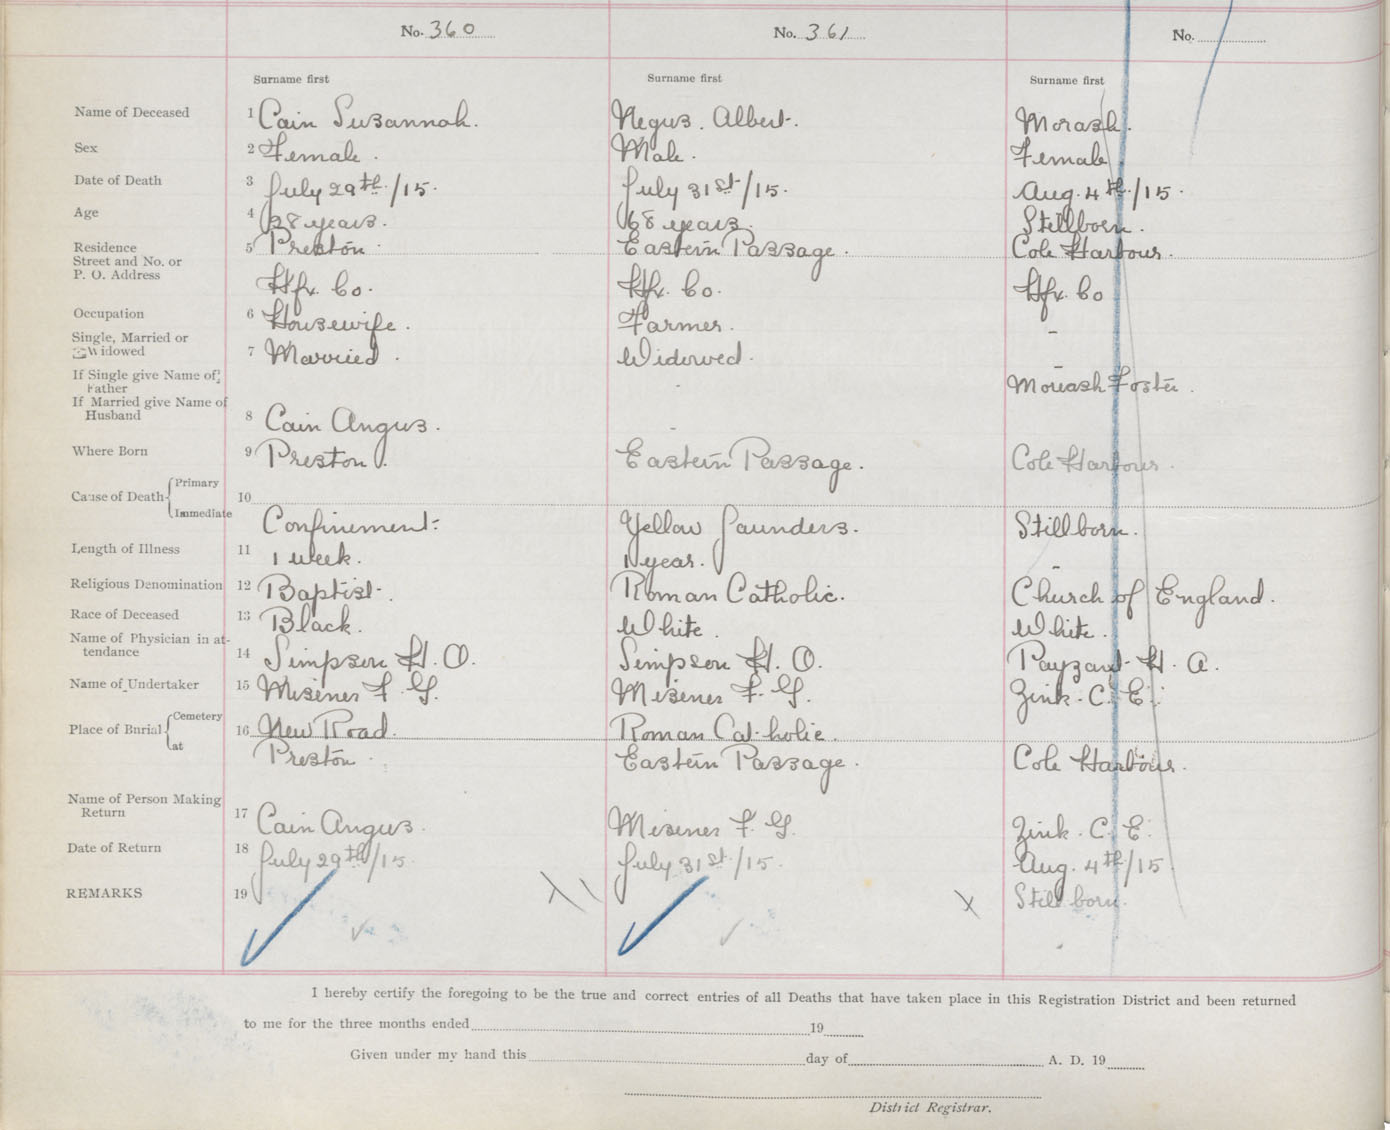 No. 360 No. 361 No.
Surname first Surname first Surname first
Name of Deceased 1 Cain Susannah. Negus. Albert. Morash.
Sex 2 Female. Male. Female
Date of Death 3 July 29th/15. July 31st/15. Aug. 4th/15.
Age 4 28 years. 68 years. Stillborn.
Residence 5 Preston. Eastern Passage. Cole Harbour.
Street and No. or
P. O. Address Hfx. Co. Hfx. Co. Hfx. Co
Occupation 6 Housewife. Farmer. -
Single, Married or
Widowed 7 Married. Widowed. -
If Single give Name of
Father - Morash Foster.
If Married give Name of
Husband 8 Cain Angus. -
Where Born 9 Preston. Eastern Passage. Cole Harbour.
Cause of Death Primary 10
Immediate Confinement. Yellow Jaunders. Stillborn.
Length of Illness 11 1 week. 1 year. -
Religious Denomination 12 Baptist. Roman Catholic. Church of England.
Race of Deceased 13 Black. White. White.
Name of Physician in at-
tendance 14 Simpson H. O. Simpson H. O. Payzant H. A.
Name of Undertaker 15 Misener F. G. Misener F. G. Zink. C. E.
Place of Burial Cemetery 16 New Road. Roman Catholic.
at Preston. Eastern Passage. Cole Harbour.
Name of Person Making
Return 17 Cain Angus. Misener F. G. Zink. C. E.
Date of Return 18 July 29th/15. July 31st/15. Aug. 4th/15
REMARKS 19 Still born.
I hereby certify the foregoing to be the true and correct entries of all Deaths that have taken place in this Registration District and been returned
to me for the three months ended 19
Given under my hand this day of A. D. 19
District Registrar.